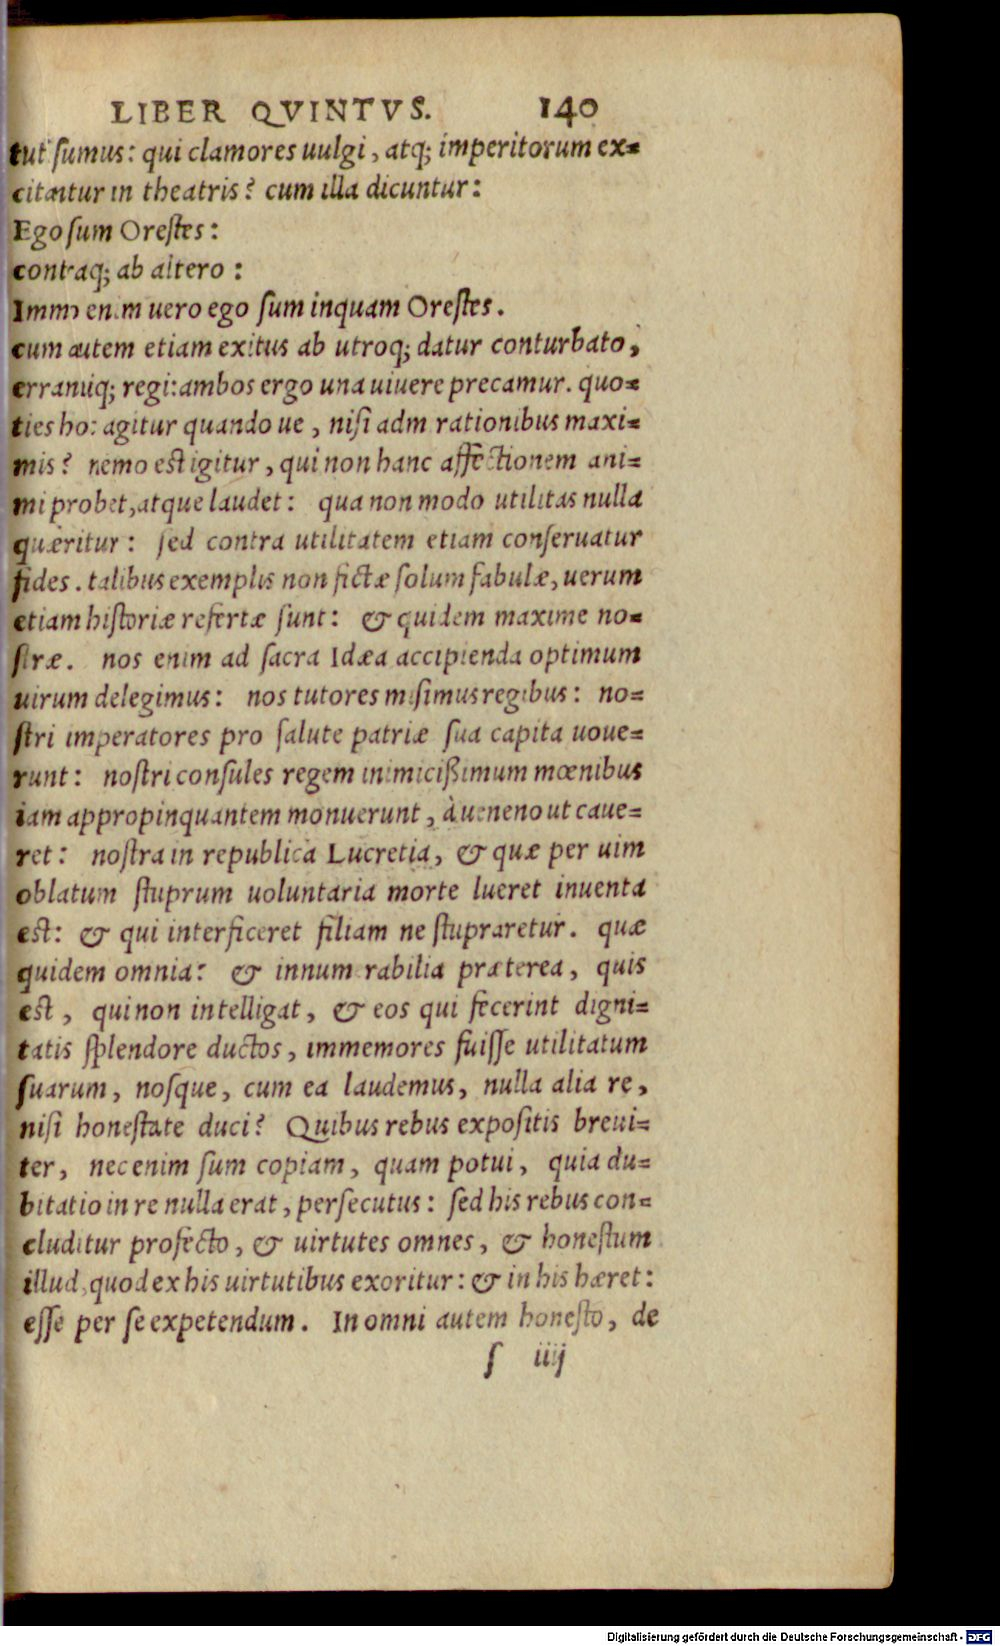 LIBER QVINTVS. 140
tut sumus: qui clamores uulgi, atq; imperitorum ex=
citantur in theatris? cum illa dicuntur:
Ego sum Orestes:
contraq; ab altero:
Immo enim uero ego sum inquam Orestes.
cum autem etiam exitus ab utroq; datur conturbato,
erranuiq; regi: ambos ergo una uiuere precamur. quo=
ties hoc agitur quando ue, nisi adm rationibus maxi=
mis? nemo est igitur, qui non hanc affectionem ani=
mi probet, atque laudet: qua non modo utilitas nulla
quæritur: sed contra utilitatem etiam conseruatur
fides. talibus exemplis non fictæ solum fabulæ, uerum
etiam historiæ refertæ sunt: & quidem maxime no=
stræ. nos enim ad sacra Idæa accipienda optimum
uirum delegimus: nos tutores misimus regibus: no=
stri imperatores pro salute patriæ sua capita uoue=
runt: nostri consules regem inimicißimum mœnibus
iam appropinquantem monuerunt, à ueneno ut caue=
ret: nostra in republica Lucretia, & quæ per uim
oblatum stuprum uoluntaria morte lueret inuenta
est: & qui interficeret filiam ne stupraretur. quæ
quidem omnia: & innumerabilia præterea, quis
est, qui non intelligat, & eos qui fecerint digni=
tatis splendore ductos, immemores fuisse utilitatum
suarum, nosque, cum ea laudemus, nulla alia re,
nisi honestate duci? Quibus rebus expositis breui=
ter, nec enim sum copiam, quam potui, quia du=
bitatio in re nulla erat, persecutus: sed his rebus con=
cluditur profecto, & uirtutes omnes, & honestum
illud, quod ex his uirtutibus exoritur: & in his hæret:
esse per se expetendum. In omni autem honesto, de
s iiij
Digitalisierung gefördert durch die Deutsche Forschungsgemeinschaft - DFG